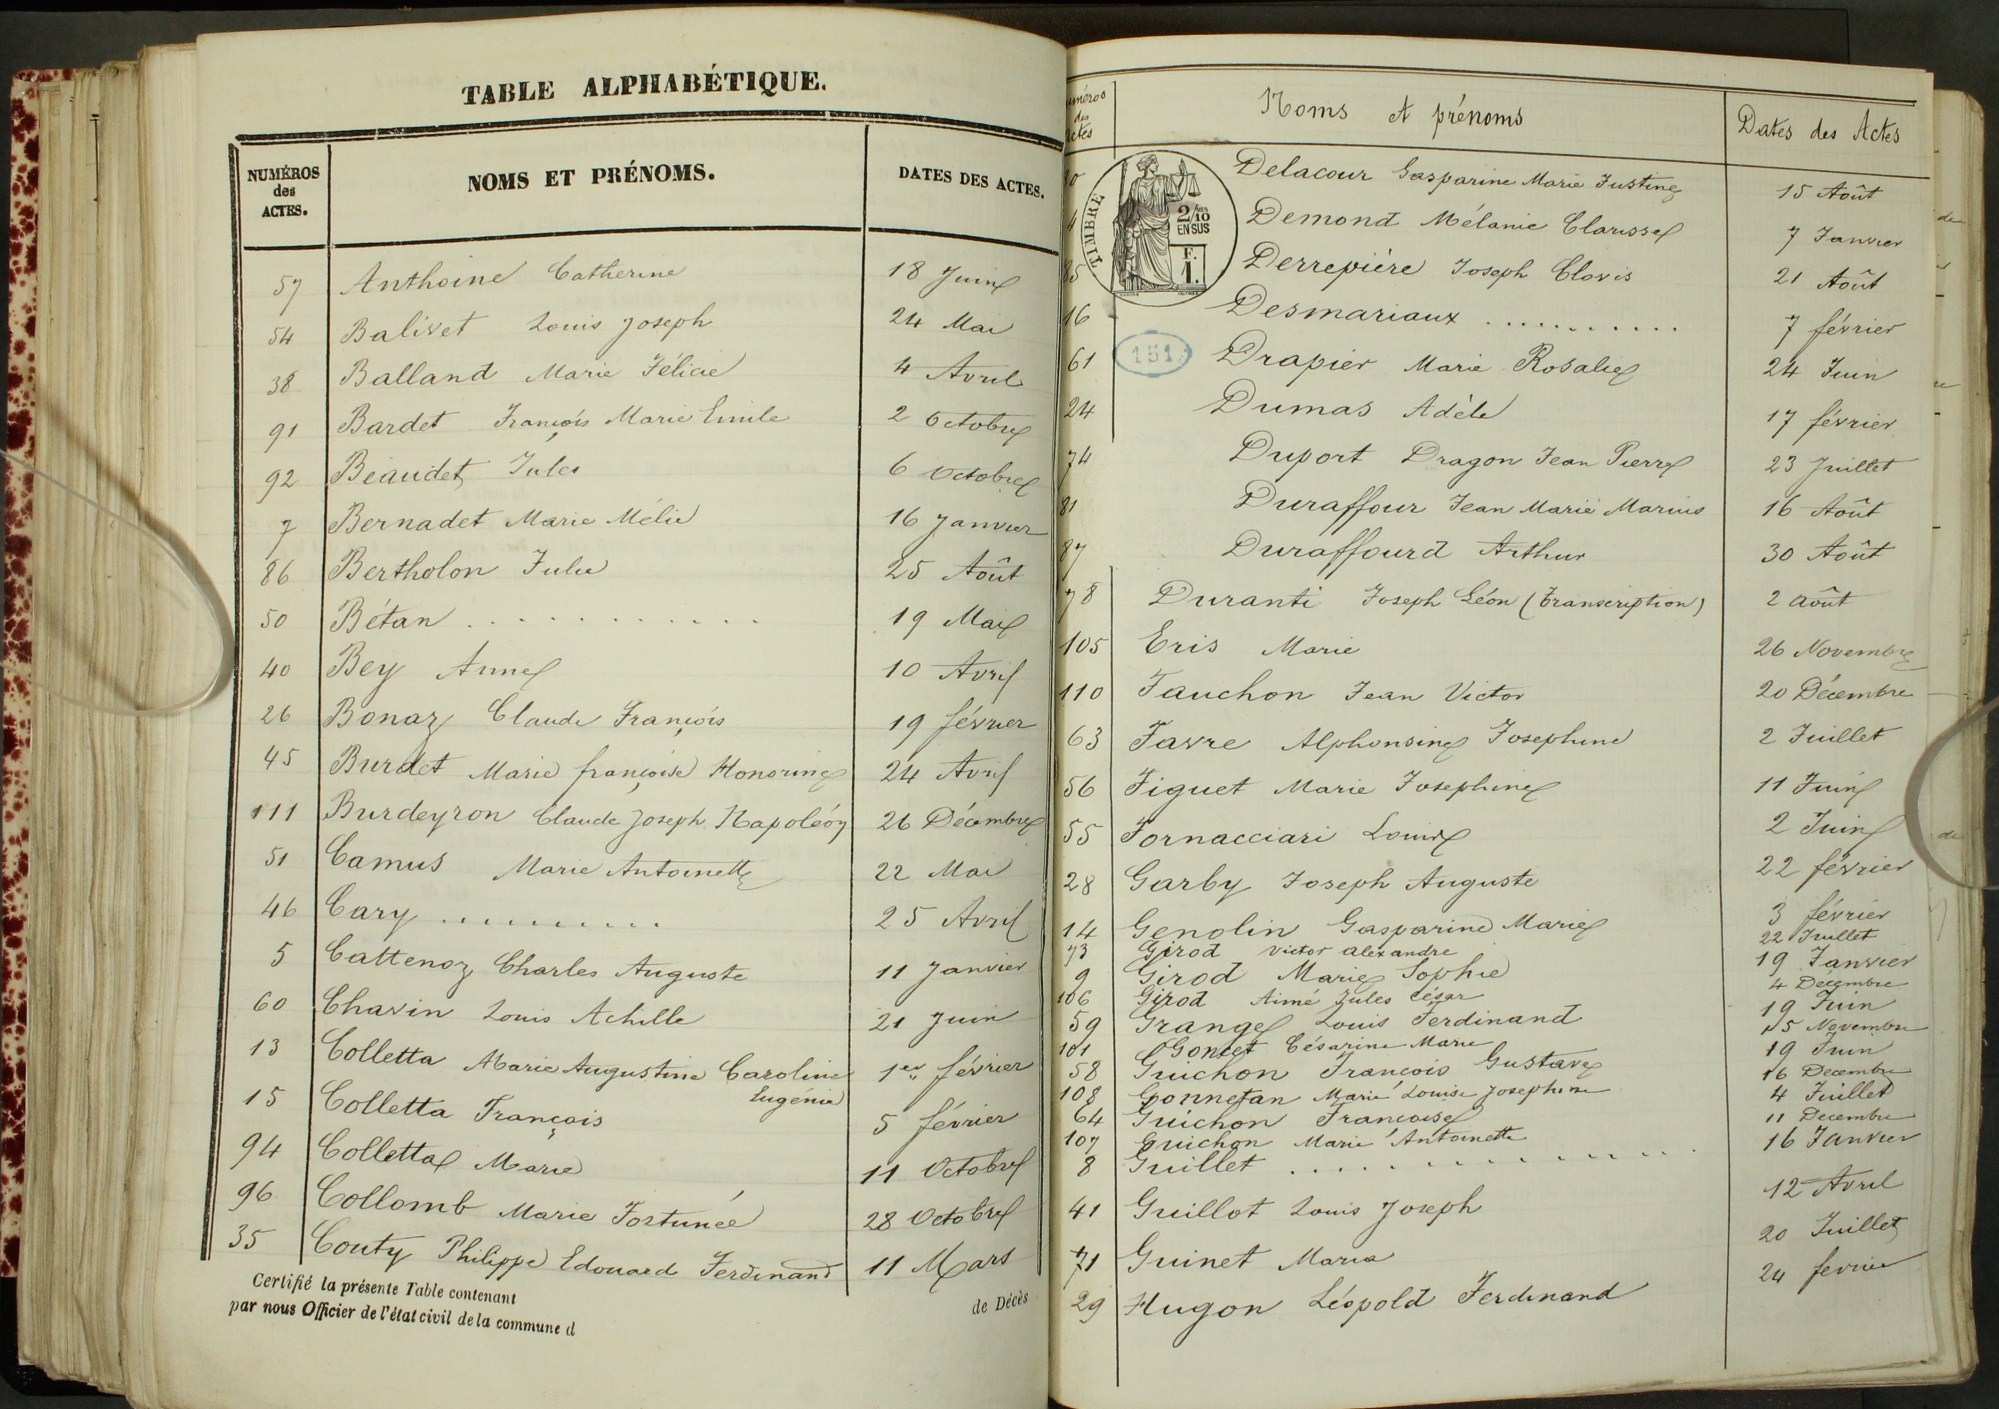 TABLE ALPHABÉTIQUE.
NUMÉROS des ACTES. NOMS ET PRÉNOMS. DATES DES ACTES.
57 Anthoine Catherine 18 Juin
54 Balivet Louis Joseph 24 Mai
38 Balland Marie Félicie 4 Avril
91 Bardet François Marie Emile 2 Octobre
92 Beaudet Jules 6 Octobre
7 Bernadet Marie Mélie 16 Janvier
86 Bertholon Julie 25 Août
50 Bétan . . . . . . . . . . . . 19 Mai
40 Bey Anne 10 Avril
26 Bonaz Claude François 19 février
45 Burdet Marie françoise Honorine 24 Avril
111 Burdeyron Claude Joseph Napoléon 26 Décembre
51 Camus Marie Antoinette 22 Mai
46 Cary . . . . . . . . . . 25 Avril
5 Cattenoz Charles Auguste 11 Janvier
60 Chavin Louis Achille 21 Juin
13 Colletta Marie Augustine Caroline 1er février
Eugénie
15 Colletta François 5 février
94 Colletta Marie 11 Octobre
96 Collomb Marie Fortunée 28 Octobre
35 Couty Philippe Edouard Ferdinand 11 Mars
Certifié la présente Table contenant de Décès
par nous Officier de l'état civil de la commune d
uméros des ctes Noms et prénoms Dates des Actes
0 Delacour Gasparine Marie Justine 15 Août
4 Demond Mélanie Clarisse 7 Janvier
TIMBRE
2/10
EN SUS
F.
1.
85 Derrepière Joseph Clovis 21 Août
16 Desmariaux . . . . . . . . . . . 7 février
151
61 Drapier Marie Rosalie 24 Juin
24 Dumas Adèle 17 février
74 Duport Dragon Jean Pierre 23 Juillet
81 Duraffour Jean Marie Marius 16 Août
87 Duraffourd Arthur 30 Août
78 Duranti Joseph Léon (transcription) 2 août
105 Eris Marie 26 Novembre
110 Fauchon Jean Victor 20 Décembre
63 Favre Alphonsine Josephine 2 Juillet
56 Figuet Marie Josephine 11 Juin
55 Fornacciari Louis 2 Juin
28 Garby Joseph Auguste 22 février
14 Genolin Gasparine Marie 3 février
73 Girod Victor alexandre 22 Juillet
9 Girod Marie Sophie 19 Janvier
106 Girod Aimé Jules César 4 Décembre
59 Grange Louis Ferdinand 19 Juin
101 Goncet Césarine Marie 15 Novembre
58 Guichon François Gustave 19 Juin
108 Gonnetan Marie Louise Josephine 16 Décembre
64 Guichon Françoise 4 Juillet
107 Guichon Marie Antoinette 11 Décembre
8 Guillet . . . . . . . . . . . . . . . 16 Janvier
41 Guillot Louis Joseph 12 Avril
71 Guinet Maria 20 Juillet
29 Hugon Léopold Ferdinand 24 fevrier